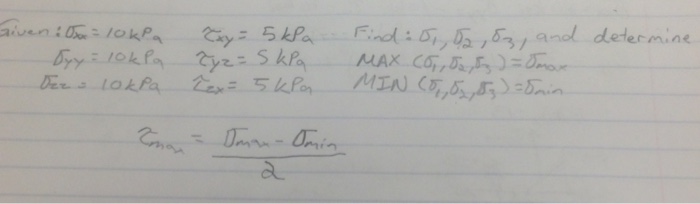 Given: σxx = 10kPa τxy = 5kPa Find: σ1, σ2, σ3, and determine
σyy = 10kPa τyz = 5kPa MAX (σ1, σ2, σ3) = σmax
σzz = 10kPa τzx = 5kPa MIN (σ1, σ2, σ3) = σmin
τmax = σmax - σmin
2